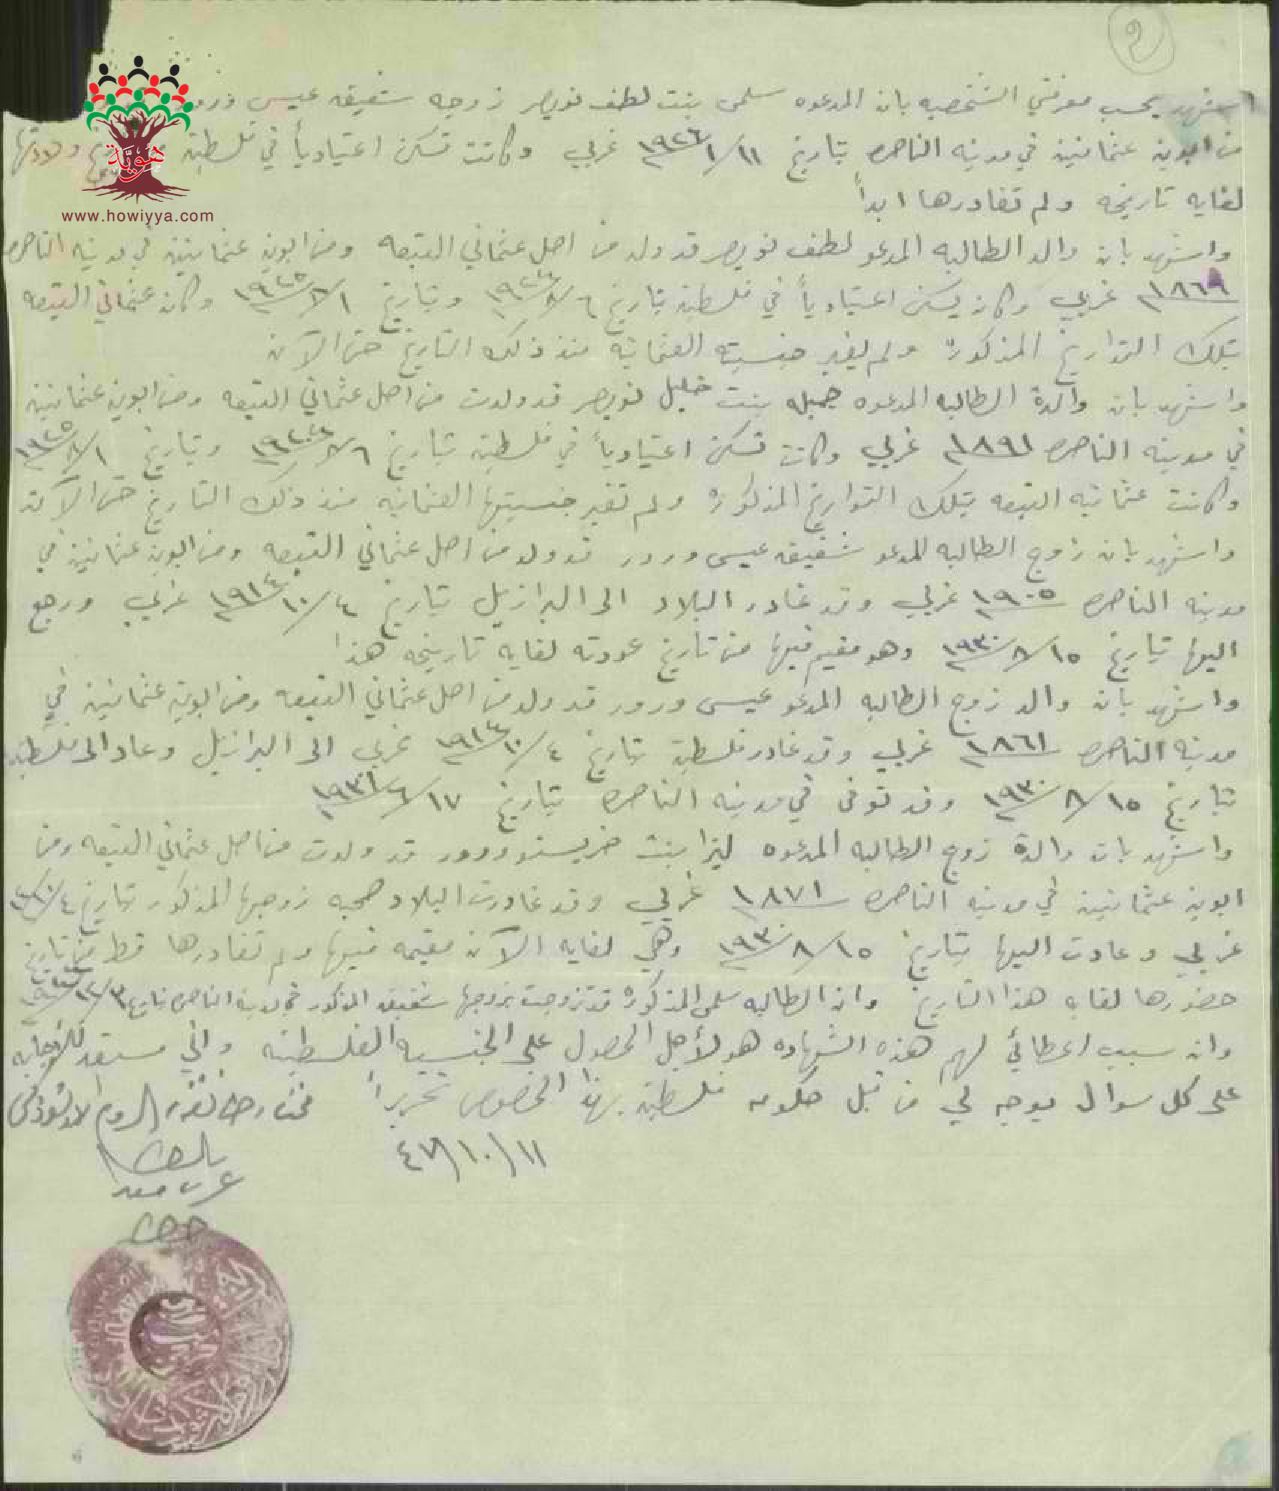 ٢
اشهد بحسب معرفتي الشخصيه بان المدعوه سلمى بنت لطف نويصر زوجه شفيق عيسى ورور
هوية
من ابوين عثمانيين في مدينه الناصره بتاريخ ١١/١/١٩٢٦ غربي وكانت تسكن اعتيادياً في فلسطين ولادتها
www.howiyya.com
لغايه تاريخه ولم تغادرها ابداً
واشهد بان والد الطالبه المدعو لطف نويصر قد ولد من اصل عثماني التبعه ومن ابوين عثمانيين في مدينه الناصره
١٨٦٩ غربي وكان يسكن اعتيادياً في فلسطين بتاريخ ٦/٨/١٩٢٤ وبتاريخ ١/٨/١٩٢٥ وكان عثماني التبعه
بتلك التواريخ المذكوره ولم يغير جنسيته العثمانيه منذ ذلك التاريخ حتى الآن
واشهد بان والدة الطالبه المدعوه جميله بنت خليل نويصر قد ولدت من اصل عثماني التبعه ومن ابوين عثمانيين
في مدينه الناصره ١٨٩١ غربي وكانت تسكن اعتيادياً في فلسطين بتاريخ ٦/٨/١٩٢٤ وبتاريخ ١/٨/١٩٢٥
وكانت عثمانيه التبعه بتلك التواريخ المذكوره ولم تغير جنسيتها العثمانيه منذ ذلك التاريخ حتى الآن
واشهد بان زوج الطالبه المدعو شفيق عيسى ورور قد ولد من اصل عثماني التبعه ومن ابوين عثمانيين في
مدينه الناصره ١٩٠٥ غربي وقد غادر البلاد الى البرازيل بتاريخ ٤/١٠/١٩١٤ غربي ورجع
اليها بتاريخ ١٥/٨/١٩٣٠ وهو مقيم فيها من تاريخ عودته لغايه تاريخه هذا
واشهد بان والد زوج الطالبه المدعو عيسى ورور قد ولد من اصل عثماني التبعه ومن ابوين عثمانيين في
مدينه الناصره ١٨٦١ غربي وقد غادر فلسطين بتاريخ ٤/١٠/١٩١٤ غربي الى البرازيل وعاد الى فلسطين
بتاريخ ١٥/٨/١٩٣٠ وقد توفى في مدينه الناصره بتاريخ ١٧/٦/١٩٣١
واشهد بان والدة زوج الطالبه المدعوه ليزا بنت خريستو ورور قد ولدت من اصل عثماني التبعه ومن
ابوين عثمانيين في مدينه الناصره ١٨٧١ غربي وقد غادرت البلاد صحبه زوجها المذكور بتاريخ ٤/١٠/
غربي وعادت اليها بتاريخ ١٥/٨/١٩٣٠ وهي لغايه الآن مقيمه فيها ولم تغادرها قط من تاريخ
حضورها لغايه هذا التاريخ وان الطالبه سلمى المذكوره قد تزوجت بزوجها شفيق المذكور في مدينه الناصره بتاريخ
وان سبب اعطائي لهم هذه الشهاده هو لأجل الحصول على الجنسيه الفلسطينه واني مستعد للاجابه
على كل سوال يوجه لي من قبل حكومه فلسطين بهذا الخصوص تحريراً مختار طائفة الروم الارثوذكس
١١/١٠/٤٧
بالناصره